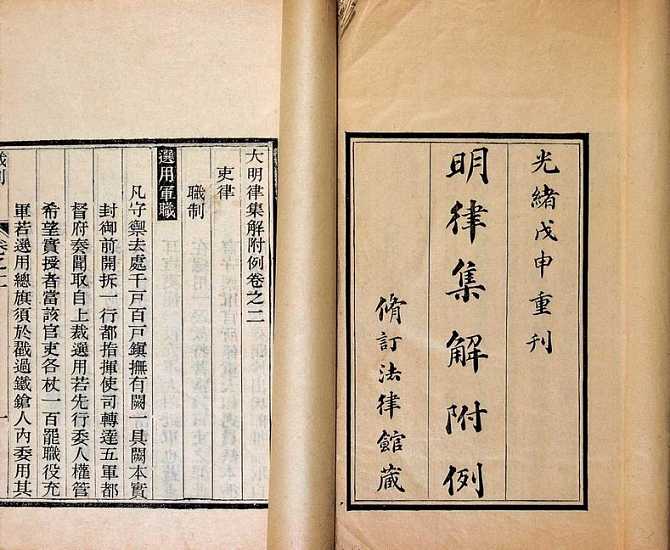 光緒戊申重刊
明律集解附例
脩訂法律館藏
大明律集解附例卷之二
吏律
職制
選用軍職
凡守禦去處千戶百戶鎭撫有闕一具闕本實
封御前開拆一行都指揮使司轉達五軍都
督府奏聞取自上裁選用若先行委人權管
希望實授者當該官吏各杖一百罷職役充
軍若選用總旗須於戳過鐵鎗人內委用其